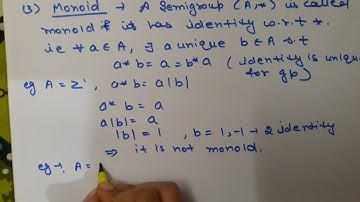 (3) Monoid → A Semigroup (A,*) is called
monoid if it has identity w.r.t *.
ie ∀ a ∈ A, ∃ a unique b ∈ A s.t
a * b = a = b * a ( identity is unique
for gp)
eg A = Z', a * b = a|b|
a * b = a
a|b| = a
|b| = 1 , b = 1, -1 → 2 identity
⇒ it is not monoid.
eg →. A =